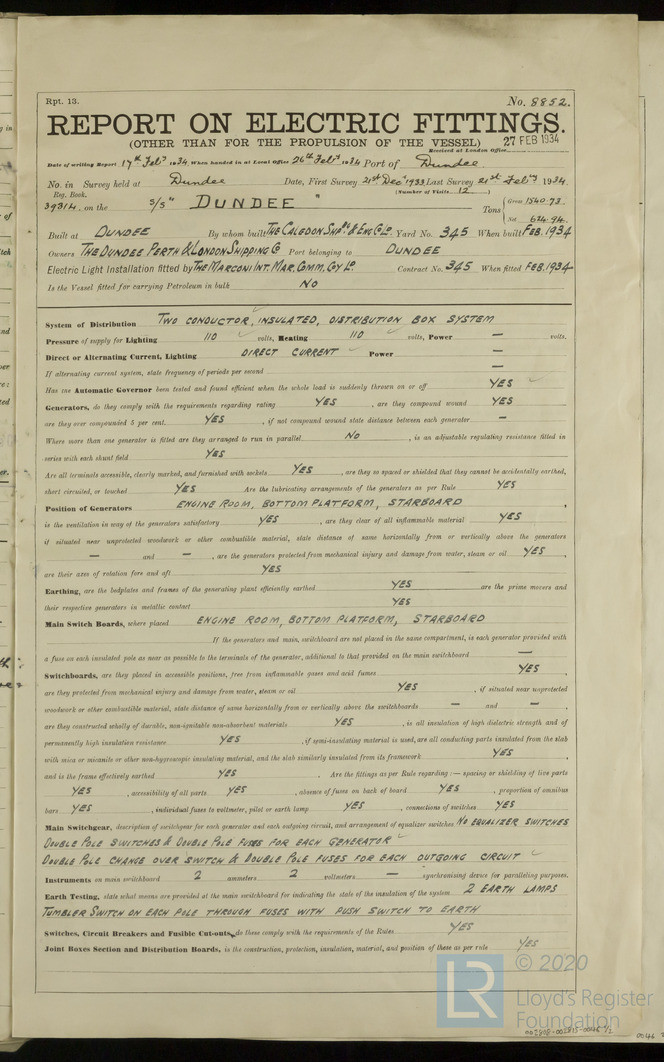 Rpt. 13.
No. 8852.
REPORT ON ELECTRIC FITTINGS.
(OTHER THAN FOR THE PROPULSION OF THE VESSEL)
27 FEB 1934
Received at London Office
Date of writing Report 17th Feby 1934 When handed in at Local Office 26th Feby 1934 Port of Dundee.
No. in Survey held at Dundee Date, First Survey 21st Decr 1933 Last Survey 21st Feby 1934.
Reg. Book. (Number of Visits 12)
39314 on the s/s "DUNDEE" Tons { Gross 1540.73.
Net 624.94.
Built at DUNDEE By whom built THE CALEDON SHPBG & ENG Co Ld. Yard No. 345 When built FEB. 1934
Owners THE DUNDEE PERTH & LONDON SHIPPING Co Port belonging to DUNDEE
Electric Light Installation fitted by THE MARCONI INT. MAR. COMM. CoY Ld. Contract No. 345 When fitted FEB. 1934
Is the Vessel fitted for carrying Petroleum in bulk NO
System of Distribution TWO CONDUCTOR, INSULATED, DISTRIBUTION BOX SYSTEM
Pressure of supply for Lighting 110 volts, Heating 110 volts, Power — volts.
Direct or Alternating Current, Lighting DIRECT CURRENT Power —
If alternating current system, state frequency of periods per second —
Has the Automatic Governor been tested and found efficient when the whole load is suddenly thrown on or off YES
Generators, do they comply with the requirements regarding rating YES, are they compound wound YES
are they over compounded 5 per cent. YES, if not compound wound state distance between each generator —
Where more than one generator is fitted are they arranged to run in parallel NO, is an adjustable regulating resistance fitted in
series with each shunt field YES
Are all terminals accessible, clearly marked, and furnished with sockets YES, are they so spaced or shielded that they cannot be accidentally earthed,
short circuited, or touched YES Are the lubricating arrangements of the generators as per Rule YES
Position of Generators ENGINE ROOM, BOTTOM PLATFORM, STARBOARD,
is the ventilation in way of the generators satisfactory YES, are they clear of all inflammable material YES
if situated near unprotected woodwork or other combustible material, state distance of same horizontally from or vertically above the generators
— and —, are the generators protected from mechanical injury and damage from water, steam or oil YES,
are their axes of rotation fore and aft YES
Earthing, are the bedplates and frames of the generating plant efficiently earthed YES are the prime movers and
their respective generators in metallic contact YES
Main Switch Boards, where placed ENGINE ROOM, BOTTOM PLATFORM, STARBOARD
If the generators and main switchboard are not placed in the same compartment, is each generator provided with
a fuse on each insulated pole as near as possible to the terminals of the generator, additional to that provided on the main switchboard —
Switchboards, are they placed in accessible positions, free from inflammable gases and acid fumes YES,
are they protected from mechanical injury and damage from water, steam or oil YES, if situated near unprotected
woodwork or other combustible material, state distance of same horizontally from or vertically above the switchboards — and —,
are they constructed wholly of durable, non-ignitable non-absorbent materials YES, is all insulation of high dielectric strength and of
permanently high insulation resistance YES, if semi-insulating material is used, are all conducting parts insulated from the slab
with mica or micanite or other non-hygroscopic insulating material, and the slab similarly insulated from its framework YES,
and is the frame effectively earthed YES. Are the fittings as per Rule regarding :— spacing or shielding of live parts
YES, accessibility of all parts YES, absence of fuses on back of board YES, proportion of omnibus
bars YES, individual fuses to voltmeter, pilot or earth lamp YES, connections of switches YES
Main Switchgear, description of switchgear for each generator and each outgoing circuit, and arrangement of equalizer switches NO EQUALIZER SWITCHES
DOUBLE POLE SWITCHES & DOUBLE POLE FUSES FOR EACH GENERATOR
DOUBLE POLE CHANGE OVER SWITCH & DOUBLE POLE FUSES FOR EACH OUTGOING CIRCUIT
Instruments on main switchboard 2 ammeters 2 voltmeters — synchronising device for paralleling purposes.
Earth Testing, state what means are provided at the main switchboard for indicating the state of the insulation of the system 2 EARTH LAMPS
TUMBLER SWITCH ON EACH POLE THROUGH FUSES WITH PUSH SWITCH TO EARTH
Switches, Circuit Breakers and Fusible Cut-outs, do these comply with the requirements of the Rules YES
Joint Boxes Section and Distribution Boards, is the construction, protection, insulation, material, and position of these as per rule YES
© 2020
LR
Lloyd's Register
Foundation
002908-002915-0046 1/2
0046